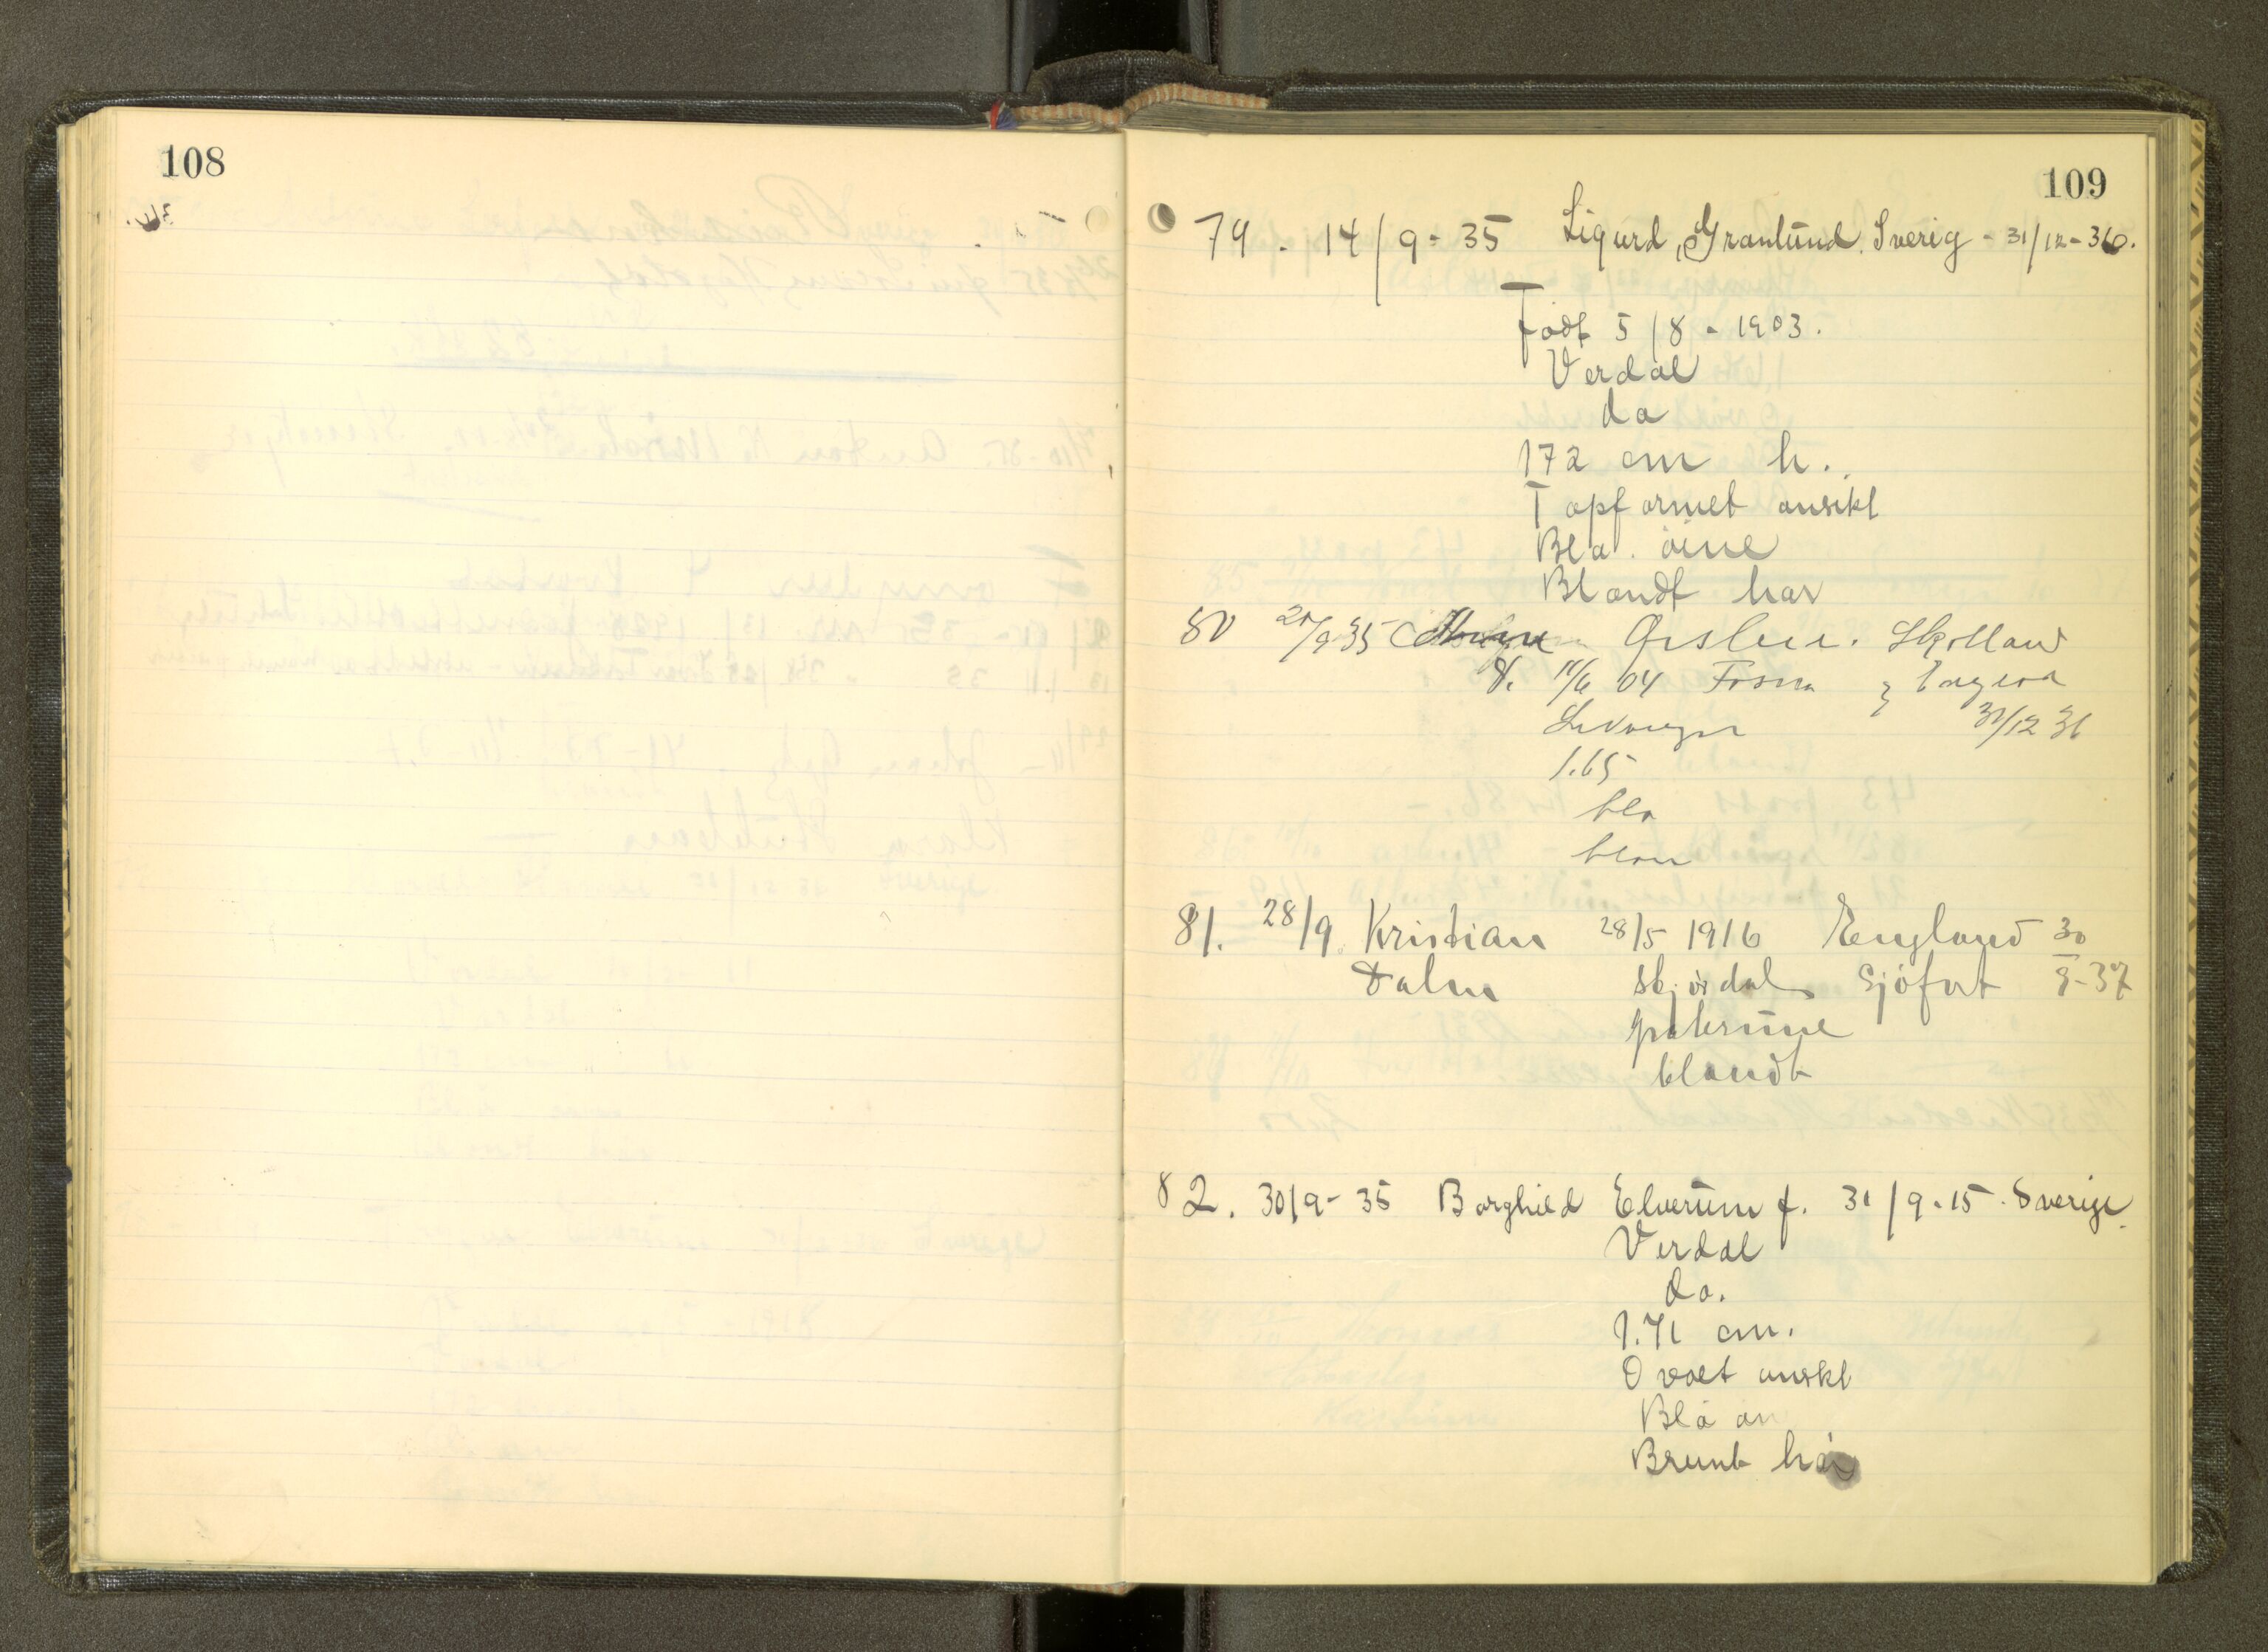 108
109
79. 14/9-35 Sigurd Granlund. Sverig - 31/12-36.
Født 5/8-1903.
Verdal
do
172 cm h.
Topformet ansikt
Blå. öine
Blondt hår
80 9 35 Skotland
f. 11/6 04 Fosna England
Levanger 31/12 36
1.65
blå
blon
81. 28/9. Kristian 28/5 1916 England 30
Dalum Skjördal Sjöfart 9-37
blondt
82. 30/9-35 Borghild Elverum f. 31/9.15. Sverige.
Verdal
do.
1.71 cm.
Ovalt anskt
Blå
Brunt hår